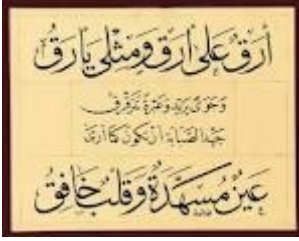 أرق على أرق ومثلي يأرق
وجوى يزيد وعبرة تترقرق
جهد الصبابة أن تكون كما أرى
عين مسهدة وقلب خافق